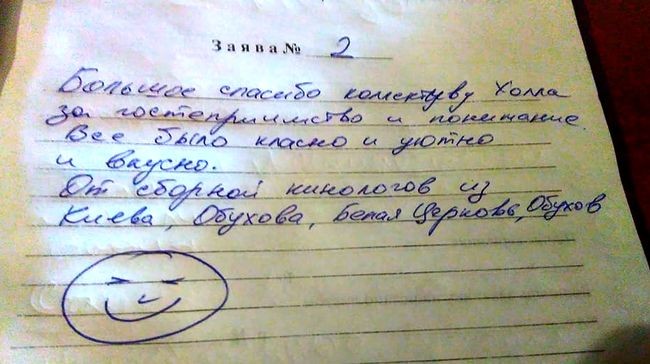 Заява № 2
Большое спасибо колективу Холла
за гостеприимство и понимание.
Все было класно и уютно
и вкусно.
От сборной кинологов из
Киева, Обухова, Белая Церковь, Обухов